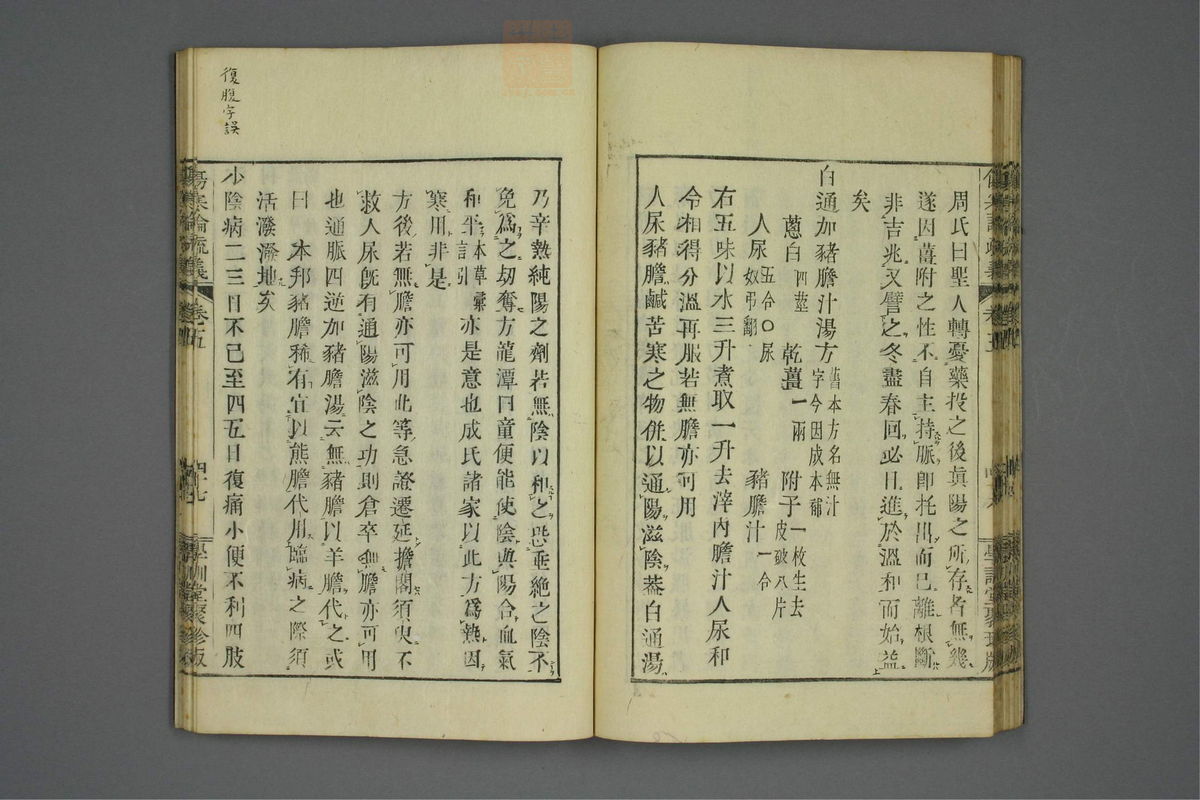 周氏曰聖人轉憂藥投之後眞陽之所存者無幾
遂因薑附之性不自主持脈卽托出而已離根斷
非吉兆又譬之冬盡春回必日進於溫和而始益
矣
白通加豬膽汁湯方舊本方名無汁字今因成本補
蔥白四莖 乾薑一兩 附子一枚生去皮破八片
人尿五合〇尿奴弔翻 豬膽汁一合
右五味以水三升煮取一升去滓內膽汁人尿和
令相得分溫再服若無膽亦可用
人尿豬膽鹹苦寒之物併以通陽滋陰蓋白通湯
乃辛熱純陽之劑若無陰以和之恐垂絕之陰不
免爲之刧奪方龍潭曰童便能使陰與陽合血氣
和平本草彙言引亦是意也成氏諸家以此方爲熱因
寒用非是
方後若無膽亦可用此等急證遷延擔閣須臾不
救人尿旣有通陽滋陰之功則倉卒無膽亦可用
也通脈四逆加豬膽湯云無豬膽以羊膽代之或
曰 本邦豬膽稀有宜以熊膽代用臨病之際須
活潑潑地矣
少陰病二三日不已至四五日復痛小便不利四肢
傷寒論疏義 卷五 四十七 學訓堂聚珍版
復腹字誤